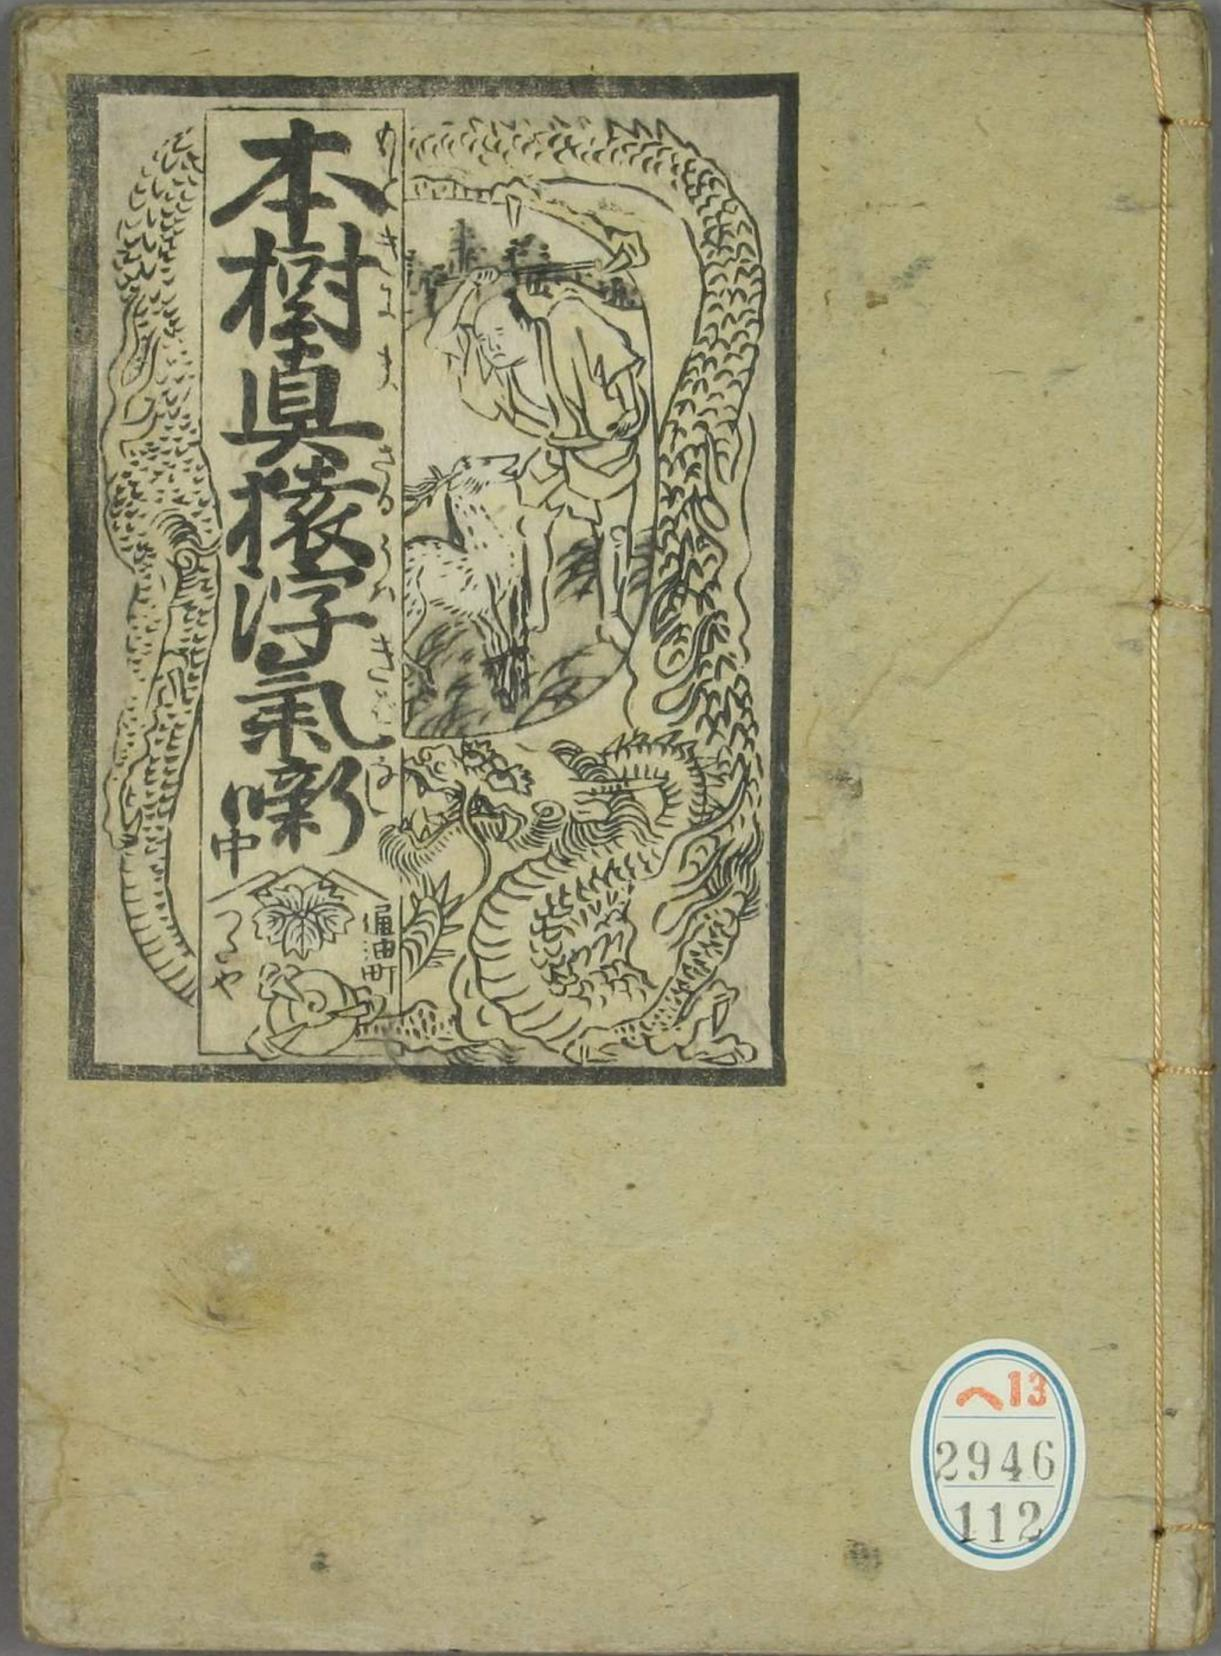 本樹真猿浮氣噺
もときにまさるうはきばなし
中
通油町
つたや
へ13
2946
112